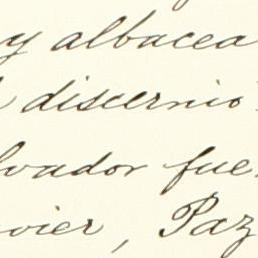 y albacea
discernio
vador fue
vier, Paz